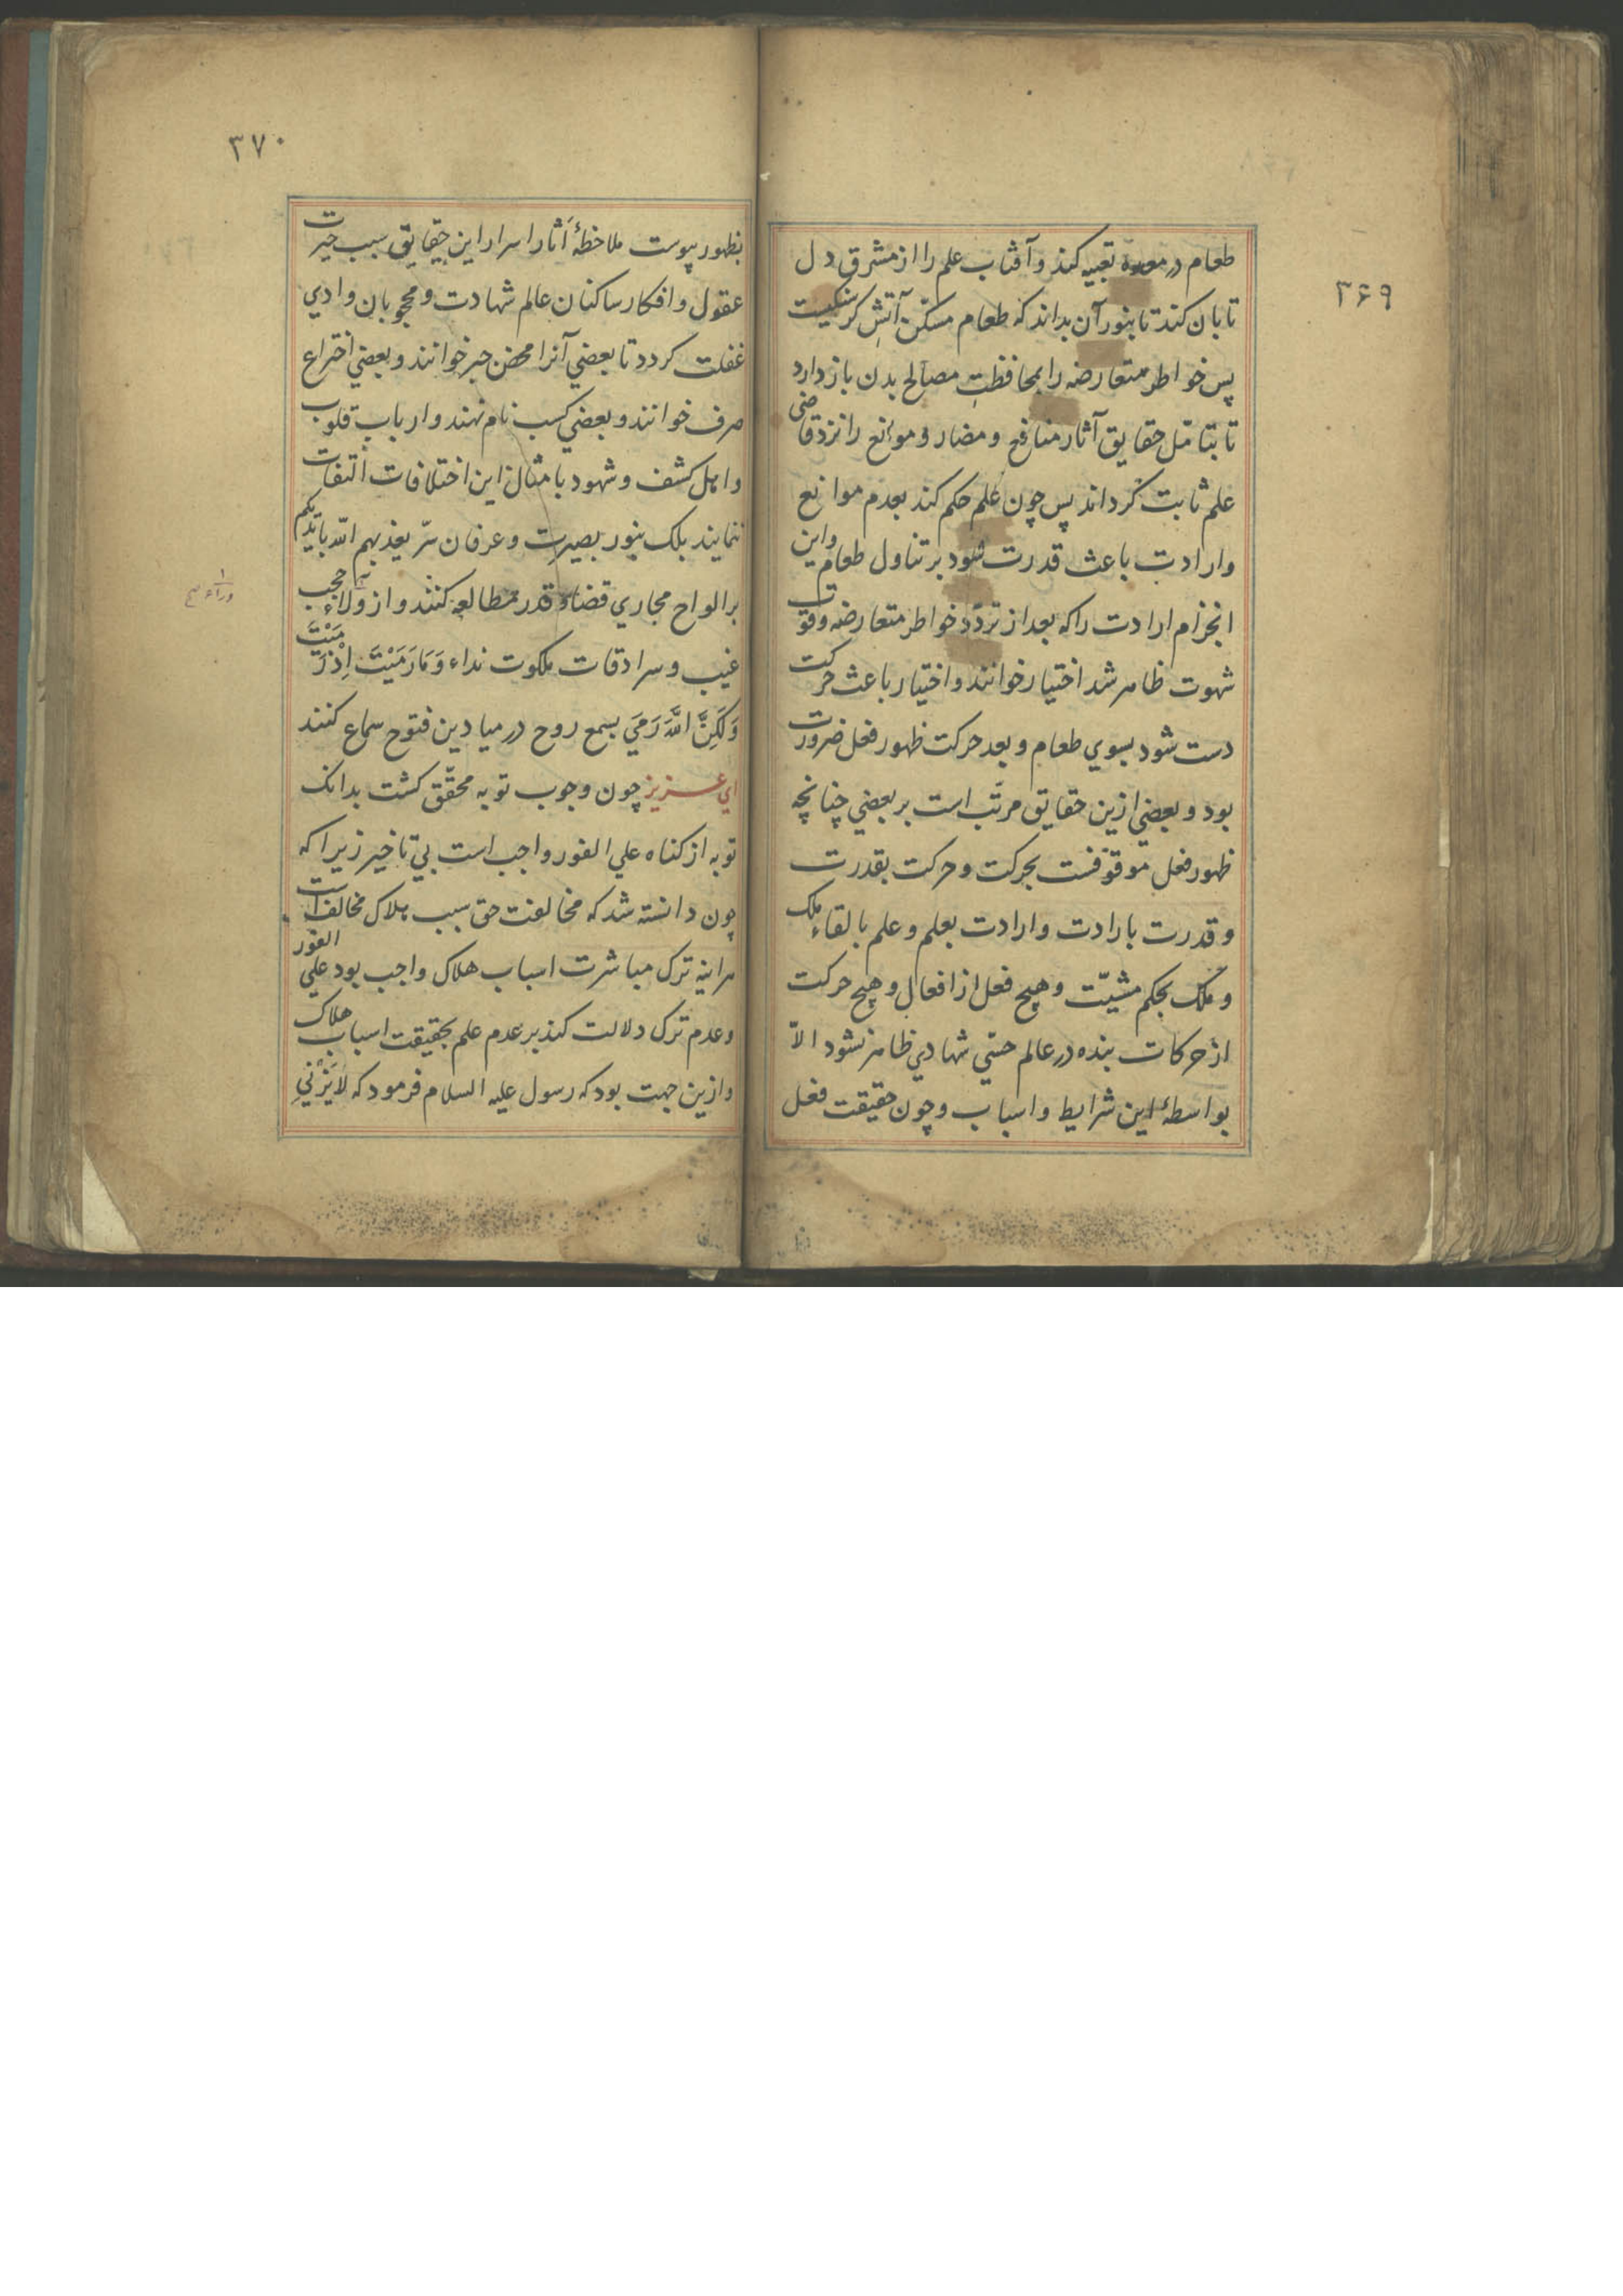 ۳۶۹
طعام در معده تعبیه کند و آفتاب علم را از مشرق دل
تابان کند تا بنور آن بداند که طعام مسکّن آتش کرسنکیست
پس خواطر متعارضه را بمحافظت مصالح بدن باز دارد
تا بتامّل حقایق آثار منافع و مضار و موانع را نزد قاضی
علم ثابت کرداند پس چون علم حکم کند بعدم موانع
وارادت باعث قدرت شود بر تناول طعام واین
انجزام ارادت را که بعد از تردّد خواطر متعارضه وقوّت
شهوت ظاهر شد اختیار خوانند واختیار باعث حرکت
دست شود بسوي طعام و بعد حرکت ظهور فعل ضرورت
بود و بعضي ازین حقایق مرتّب است بر بعضي چنانچه
ظهور فعل موقوفست بحرکت وحرکت بقدرت
و قدرت بارادت وارادت بعلم وعلم بالقاء ملک
و ملک بحکم مشیّت وهیچ فعل از افعال وهیچ حرکت
از حرکات بنده در عالم حسّي شهادي ظاهر نشود الاّ
بواسطهٔ این شرایط واسباب وچون حقیقت فعل
۳۷۰
بظهور پیوست ملاحظهٔ آثار اسرار این حقایق سبب حیرت
عقول وافکار ساکنان عالم شهادت ومحجوبان وادي
غفلت کردد تا بعضي آنرا محض جبر خوانند وبعضي اختراع
صرف خوانند و بعضي کسب نام نهند وارباب قلوب
واهل کشف وشهود بامثال این اختلافات التفات
ننمایند بلک بنور بصیرت وعرفان سرّ یعذبهم اللّه بایدیکم
بر الواح مجاري قضا و قدر مطالعه کنند واز ولاء حجب
غیب وسرادقات ملکوت نداء وَمَا رَمَیْتَ اِذْ رَمَیْتَ
وَلَکِنَّ اللَّهَ رَمَي بسمع روح در میادین فتوح سماع کنند
اي عزیز چون وجوب توبه محقّق کشت بدانک
توبه از کناه علي الفور واجب است بي تاخیر زیرا که
چون دانسته شد که مخالفت حق سبب هلاک مخالف است
هراینه ترک مباشرت اسباب هلاک واجب بود علي الفور
وعدم ترک دلالت کند بر عدم علم بحقیقت اسباب هلاک
وازین جهت بود که رسول علیه السلام فرمود که لایَزْنِي
وراء صح